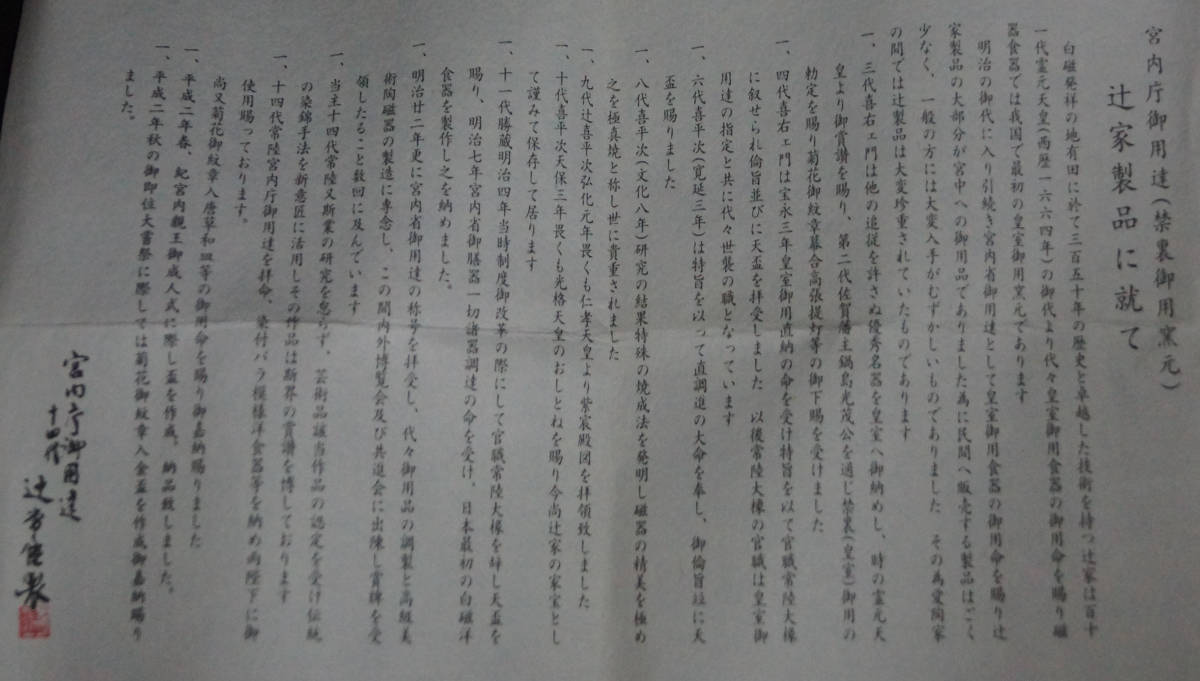 宮内庁御用達(禁裏御用窯元)
辻家製品に就て
白磁発祥の地有田に於て三百五十年の歴史と卓越した技術を持つ辻家は百十
一代霊元天皇(西歴一六六四年)の御代より代々皇室御用食器の御用命を賜り磁
器食器では我国で最初の皇室御用窯元であります
明治の御代に入り引続き宮内省御用達として皇室御用食器の御用命を賜り辻
家製品の大部分が宮中への御用品でありました為に民間へ販売する製品はごく
少なく、一般の方には大変入手がむずかしいものでありました その為愛陶家
の間では辻製品は大変珍重されていたものであります
一、三代喜右ェ門は他の追従を許さぬ優秀名器を皇室へ御納めし、時の霊元天
皇より御賞讃を賜り、第二代佐賀藩主鍋島光茂公を通じ禁裏(皇室)御用の
勅定を賜り菊花御紋章幕合高張提灯等の御下賜を受けました
一、四代喜右ェ門は宝永三年皇室御用直納の命を受け特旨を以て官職常陸大掾
に叙せられ倫旨並びに天盃を拝受しました 以後常陸大掾の官職は皇室御
用達の指定と共に代々世襲の職となっています
一、六代喜平次(寛延三年)は特旨を以って直調進の大命を奉し、御倫旨並に天
盃を賜りました
一、八代喜平次(文化八年)研究の結果特殊の焼成法を発明し磁器の精美を極め
之を極真焼と称し世に貴重されました
一、九代辻喜平次弘化元年畏くも仁孝天皇より紫宸殿図を拝領致しました
一、十代喜平次天保三年畏くも光格天皇のおしとねを賜り今尚辻家の家宝とし
て謹みて保存して居ります
一、十一代勝蔵明治四年当時制度御改革の際にして官職常陸大掾を辞し天盃を
賜り、明治七年宮内省御膳器一切諸器調達の命を受け、日本最初の白磁洋
食器を製作し之を納めました。
一、明治廿二年更に宮内省御用達の称号を拝受し、代々御用品の調製と高級美
術陶磁器の製造に専念し、この間内外博覧会及び共進会に出陳し賞牌を受
領したること数回に及んでいます
一、当主十四代常陸又斯業の研究を怠らず、芸術品該当作品の認定を受け伝統
の染錦手法を新意匠に活用しその作品は斯界の賞讃を博しております
一、十四代常陸宮内庁御用達を拝命、染付バラ模様洋食器等を納め両陛下に御
使用賜っております。
尚又菊花御紋章入唐草和皿等の御用命を賜り御嘉納賜りました
一、平成二年春、紀宮内親王御成人式に際し盃を作成、納品致しました。
一、平成二年秋の御即位大嘗祭に際しては菊花御紋章入金盃を作成御嘉納賜り
ました。
宮内庁御用達
十四代
辻常陸製